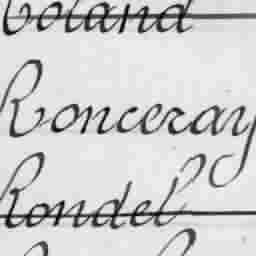 Roland
Ronceray
Rondel